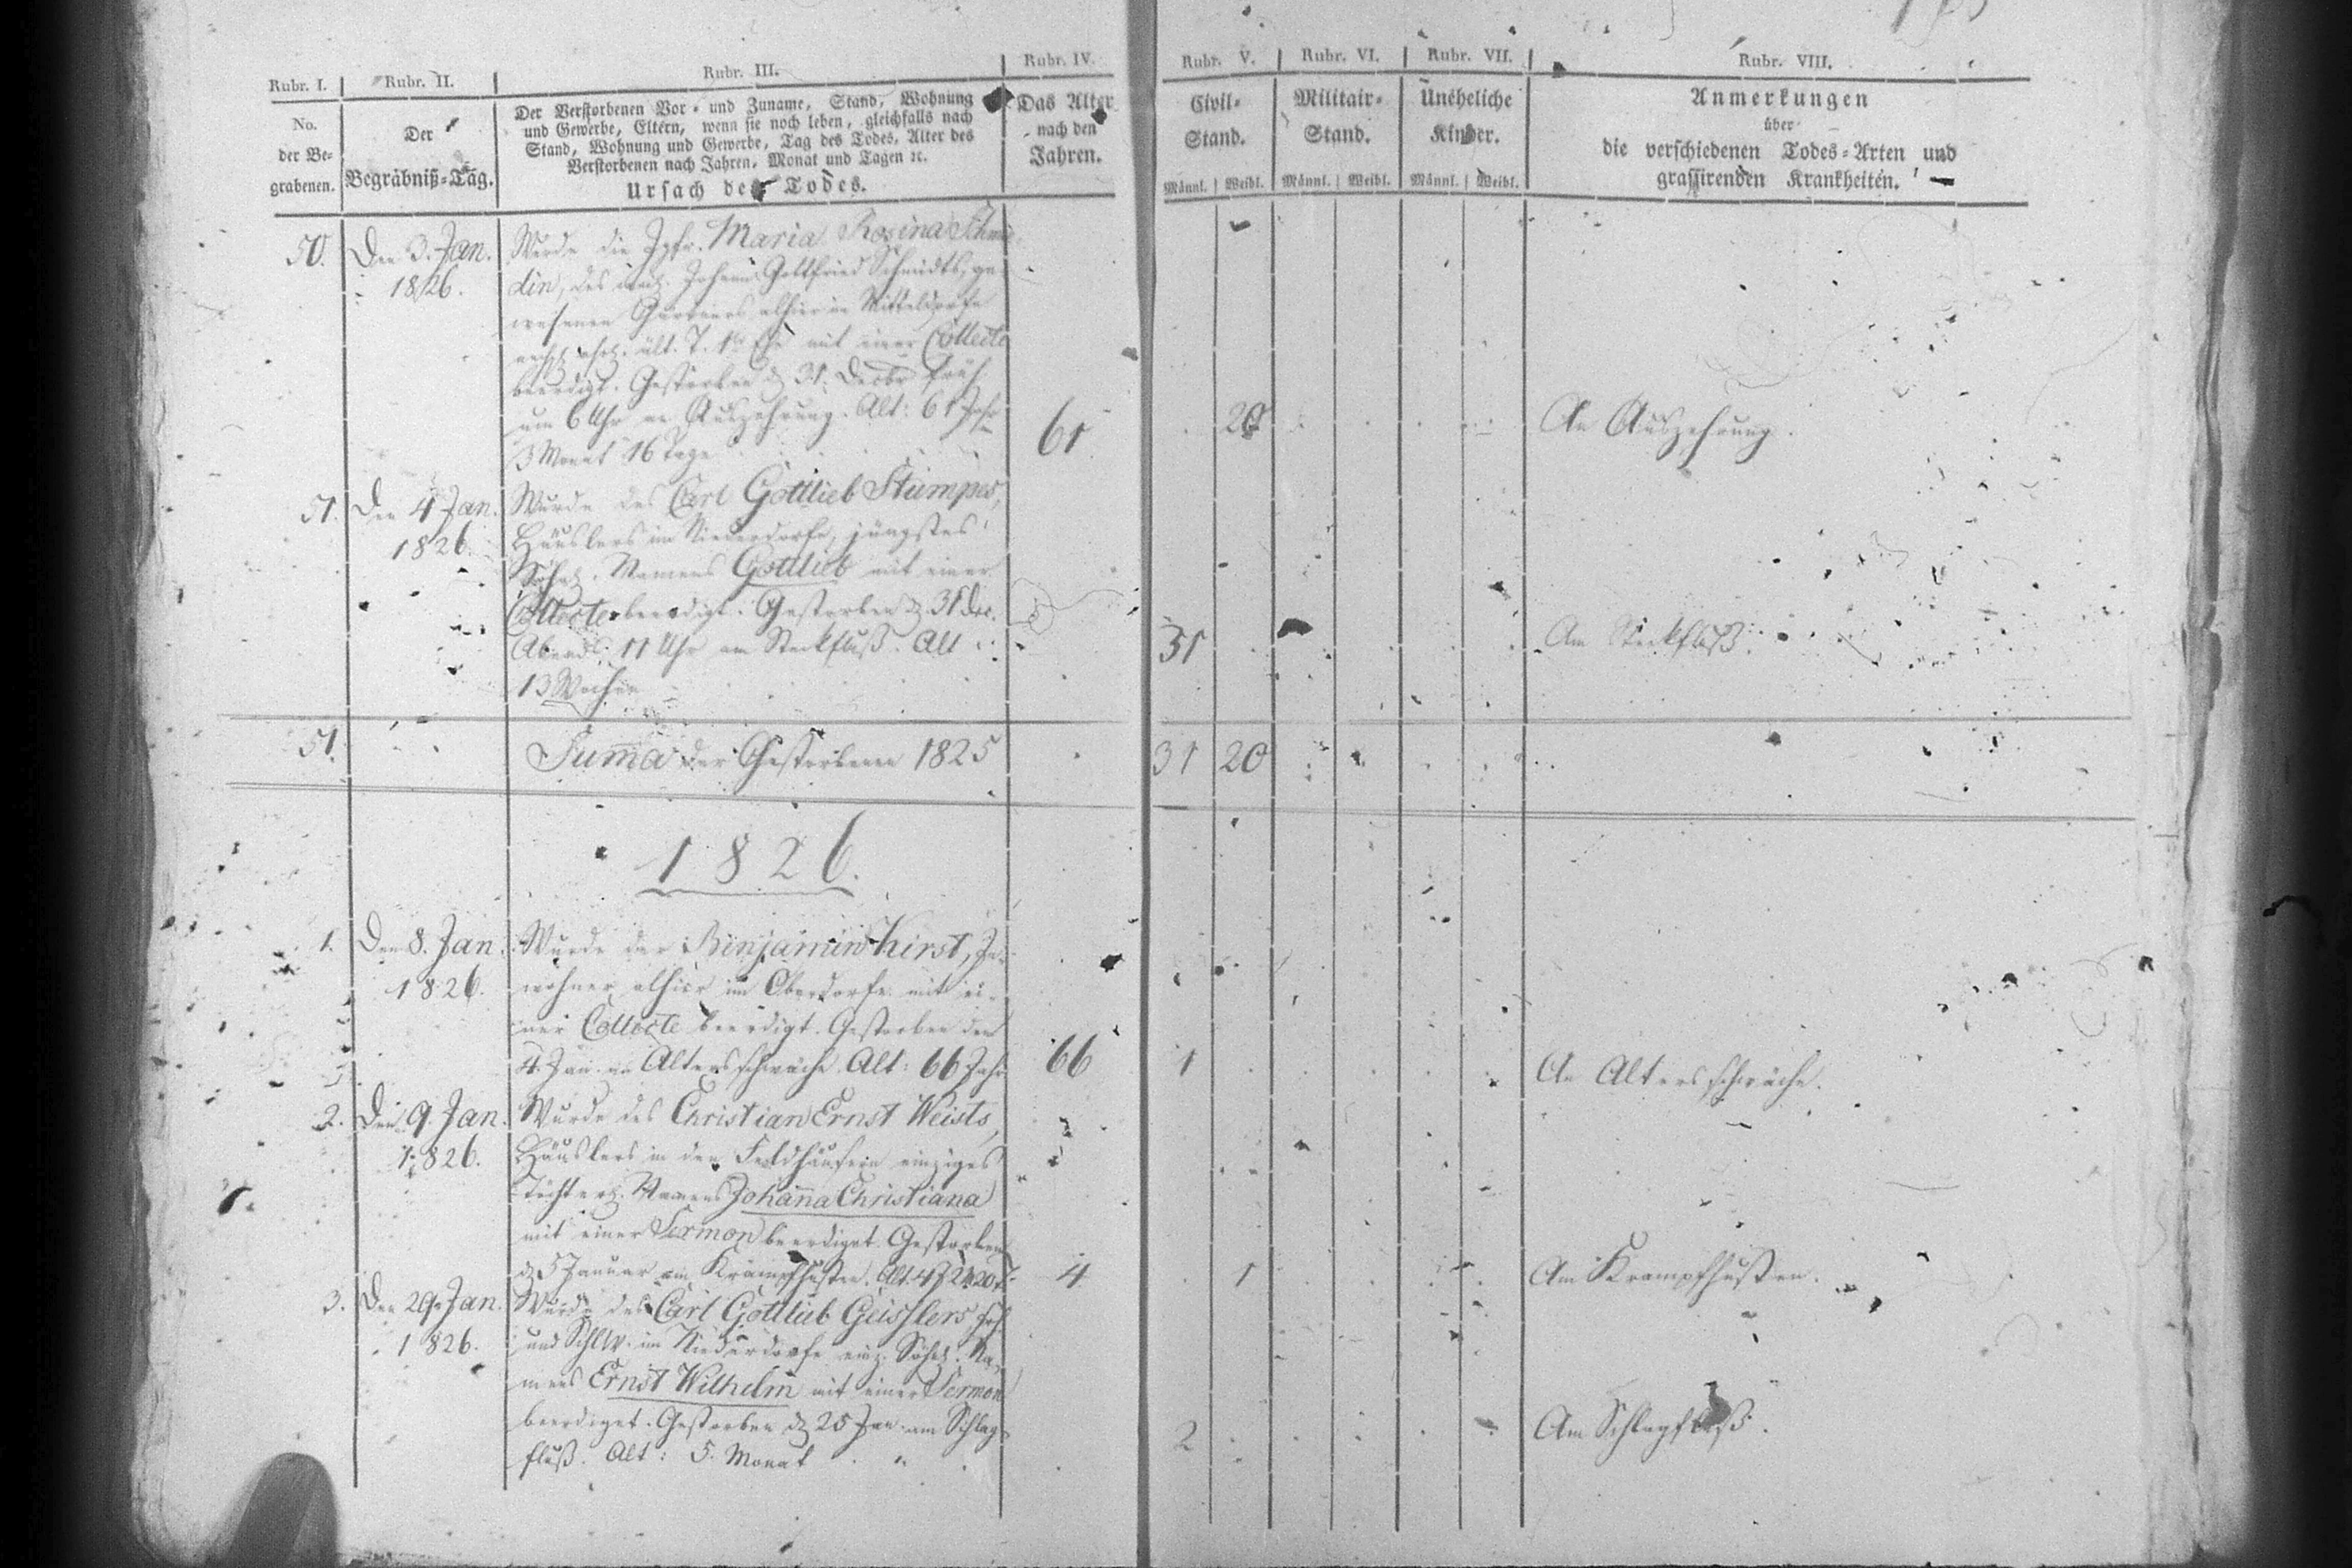 Rubr. I. Rubr. II. Rubr. III. Rubr. IV. Rubr. V. Rubr. VI. Rubr. VII. Rubr. VIII.
No. der Be- grabenen.
Der Begräbniß-Tag.
Der Verstorbenen Vor- und Zuname, Stand, Wohnung
und Gewerbe, Eltern, wenn sie noch leben, gleichfalls nach
Stand, Wohnung und Gewerbe, Tag des Todes, Alter des
Verstorbenen nach Jahren, Monat und Tagen ꝛc.
Ursach des Todes.
Das Alter
nach den
Jahren.
Civil-
Stand.
Männl. Weibl.
Militair-
Stand.
Männl. Weibl.
Uneheliche
Kinder.
Männl. Weibl.
Anmerkungen
über
die verschiedenen Todes-Arten und
grassirenden Krankheiten.
50. Den 3. Jan. Wurde die Jgfr. Maria Rosina Schmie-
1826. din, des Johann Gottfried Schmidts, ge-
wesenen Gärtners alhier im Mitteldorfe
ält. T. 1r Ehe mit einer Collecte
beerdigt. Gestorben d. 31. Decbr früh
um 6 Uhr an Auszehrung. Alt: 61 Jahr 61 20 An Auszehrung.
3 Monat 16 Tage
51. Den 4 Jan. Wurde des Carl Gottlieb Stumpes,
1826. Häuslers im Niederdorfe, jüngstes
Söhnl. Namens Gottlieb mit einer
Collecte beerdigt. Gestorben d. 31 Dec.
Abends 11 Uhr am Steckfluß. Alt 31 Am Steckfluß.
13 Wochen
51. Suma der Gestorbenen 1825 31 20
1826.
1. Den 8. Jan. Wurde der Benjamin Hirst, In-
1826. wohner alhier im Oberdorfe mit ei-
ner Collecte beerdigt. Gestorben den
4 Jan. an Altersschwäche. Alt: 66 Jahr 66 1 An Altersschwäche.
2. Den 9. Jan. Wurde des Christian Ernst Weists,
1826. Häuslers in den Feldhäusern einziges
Töchterl. Namens Johanna Christiana
mit einer Sermon beerdiget. Gestorben
d. 5 Januar am Krampfhusten. Alt. 4 J 2 M 20 T. 4 1 Am Krampfhusten.
3. Den 29. Jan. Wurde des Carl Gottlieb Geisslers
1826. und im Niederdorfe einz. Söhnl. Na-
mens Ernst Wilhelm mit einer Sermon
beerdiget. Gestorben d. 25 Jan. am Schlag-
fluß. Alt: 5. Monat 2 Am Schlagfluß.